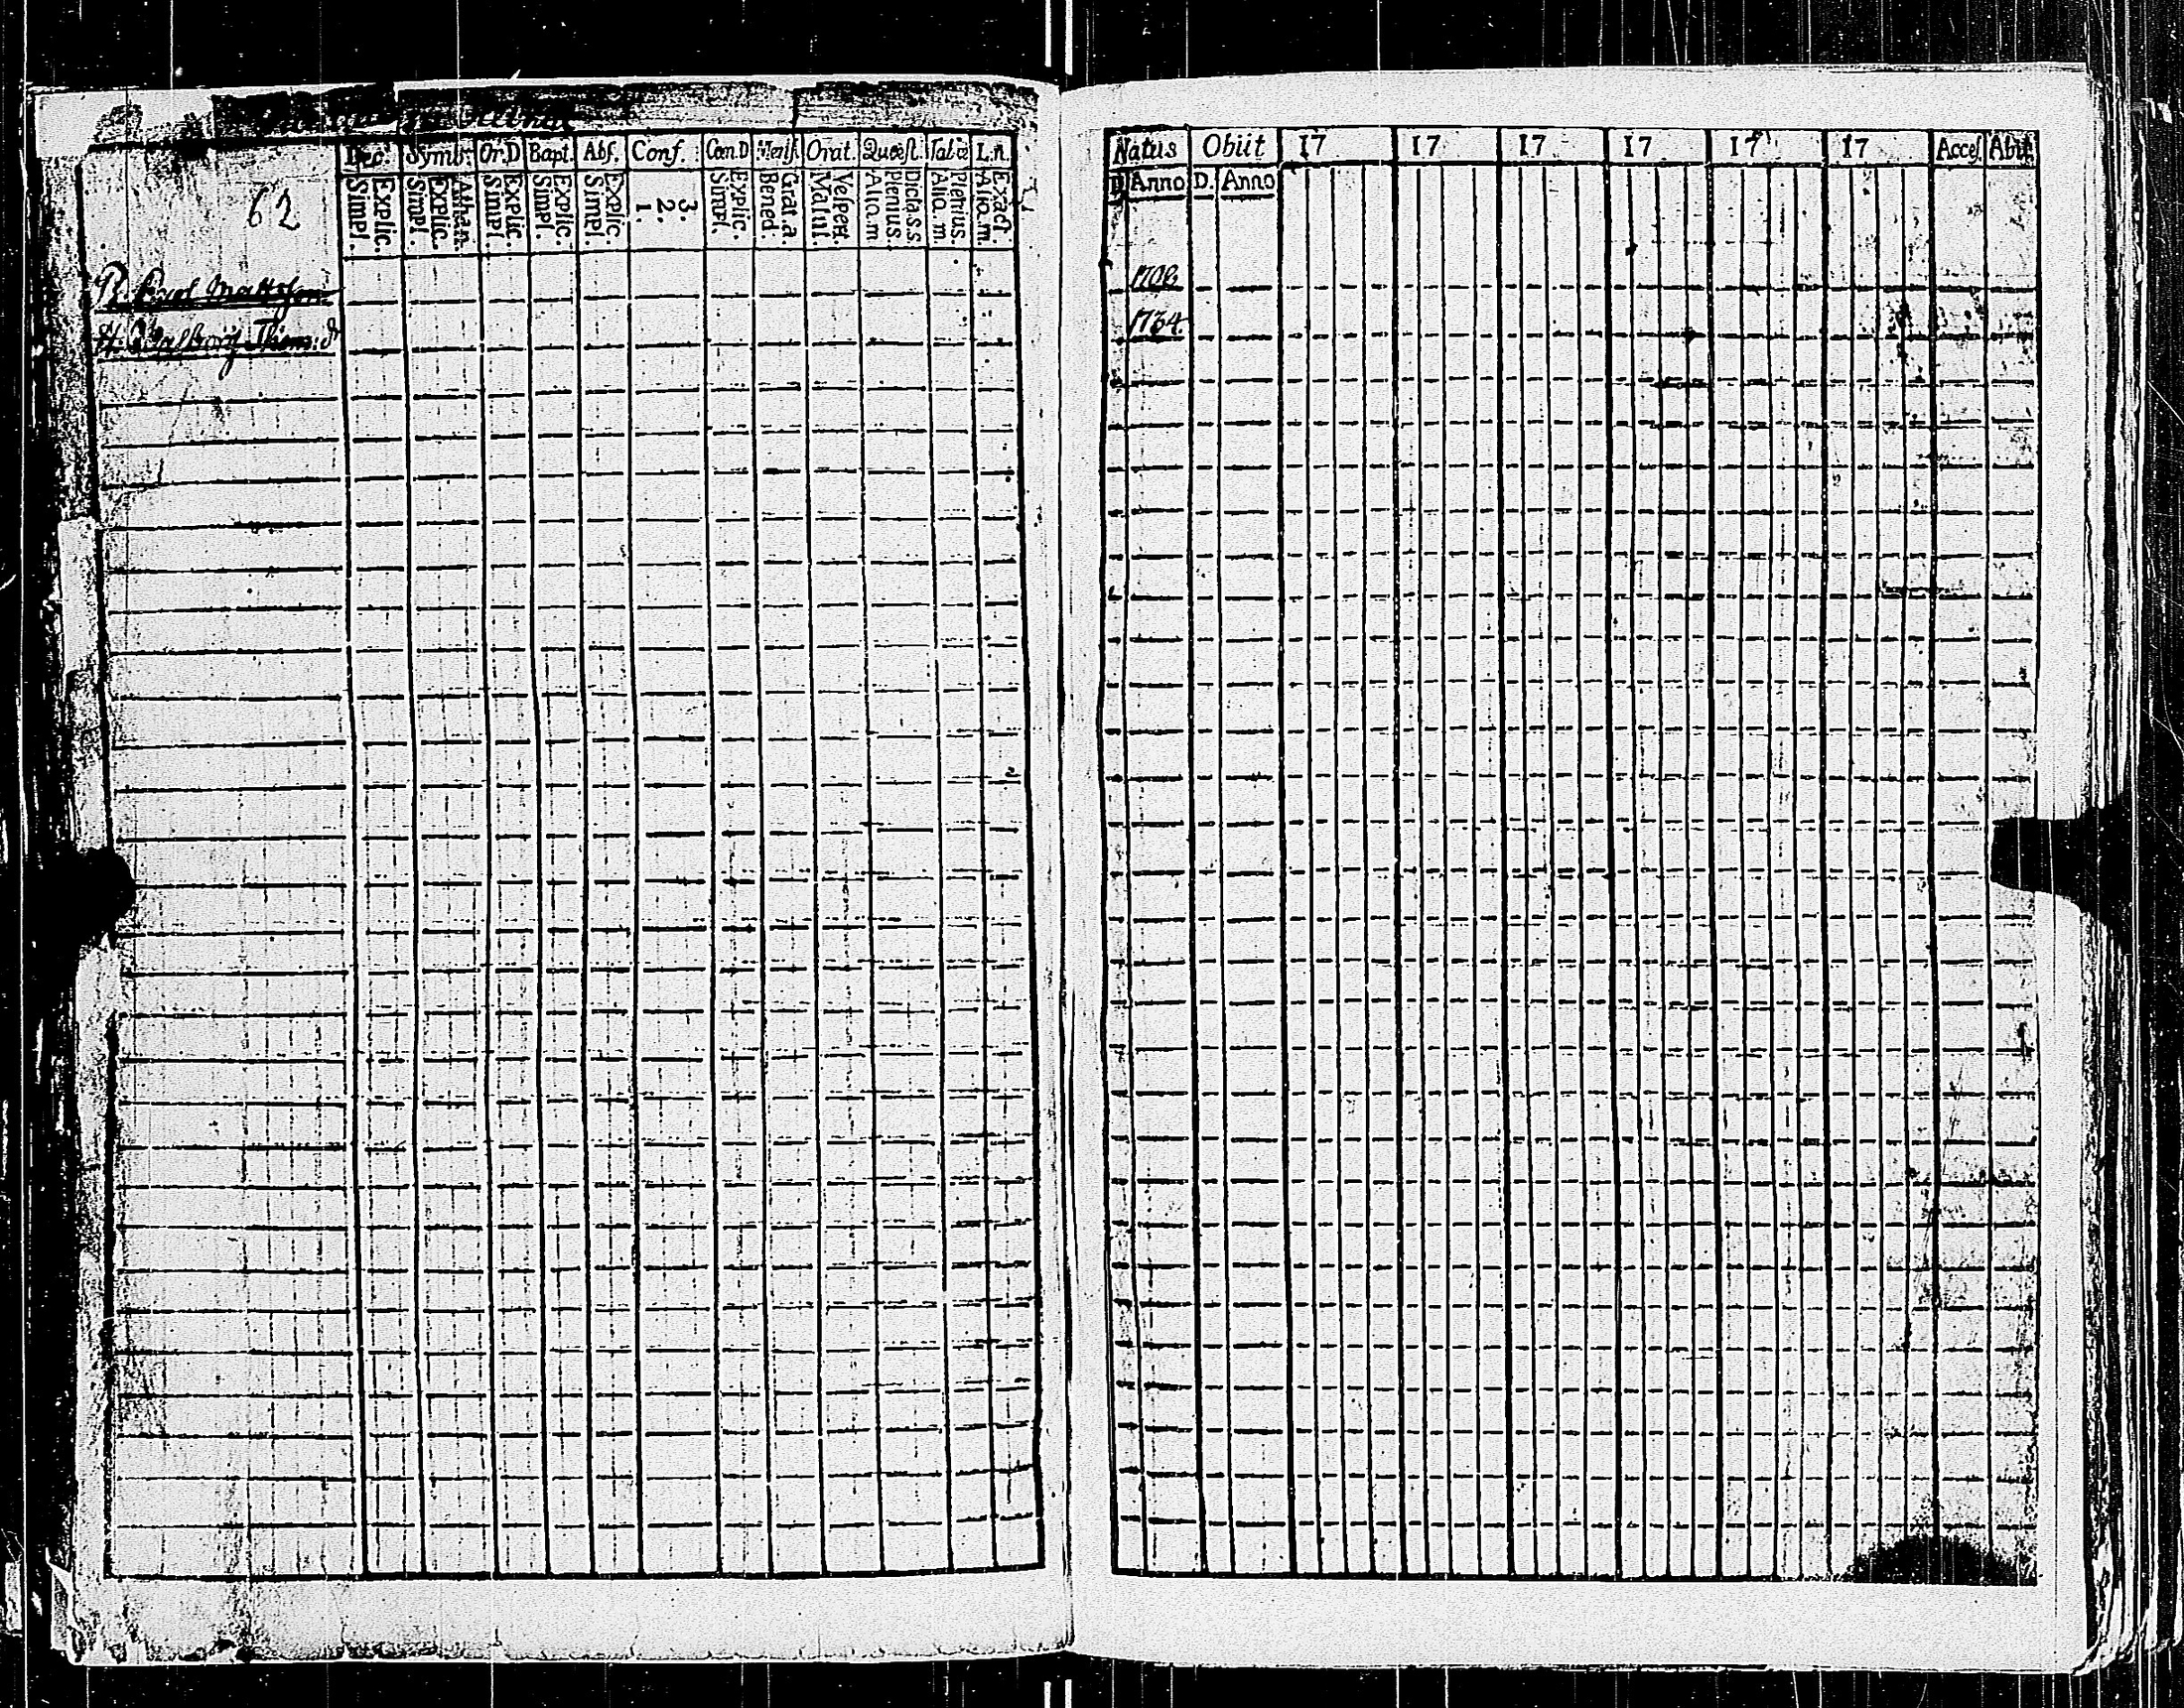 Dec. Symb. Or.D Bapt. Abs. Conf. Cœn.D Mens. Orat. Quæst. Tabæ L.n.
Explic. Simpl. Athan. Explic. Simpl. Explic. Simpl. Explic. Simpl. Explic. Simpl. 3. 2. 1. Explic. Simpl. Grat.a. Bened. Vesper. Matut. Dicta.s.s. Plenius. Alio.m Plenius. Alio.m Exact. Alio.m.
62
Matts son
H. Valborg Thom: dr
Natus Obiit 17 17 17 17 17 17 Acces. Abit
D Anno D. Anno
1708
1734